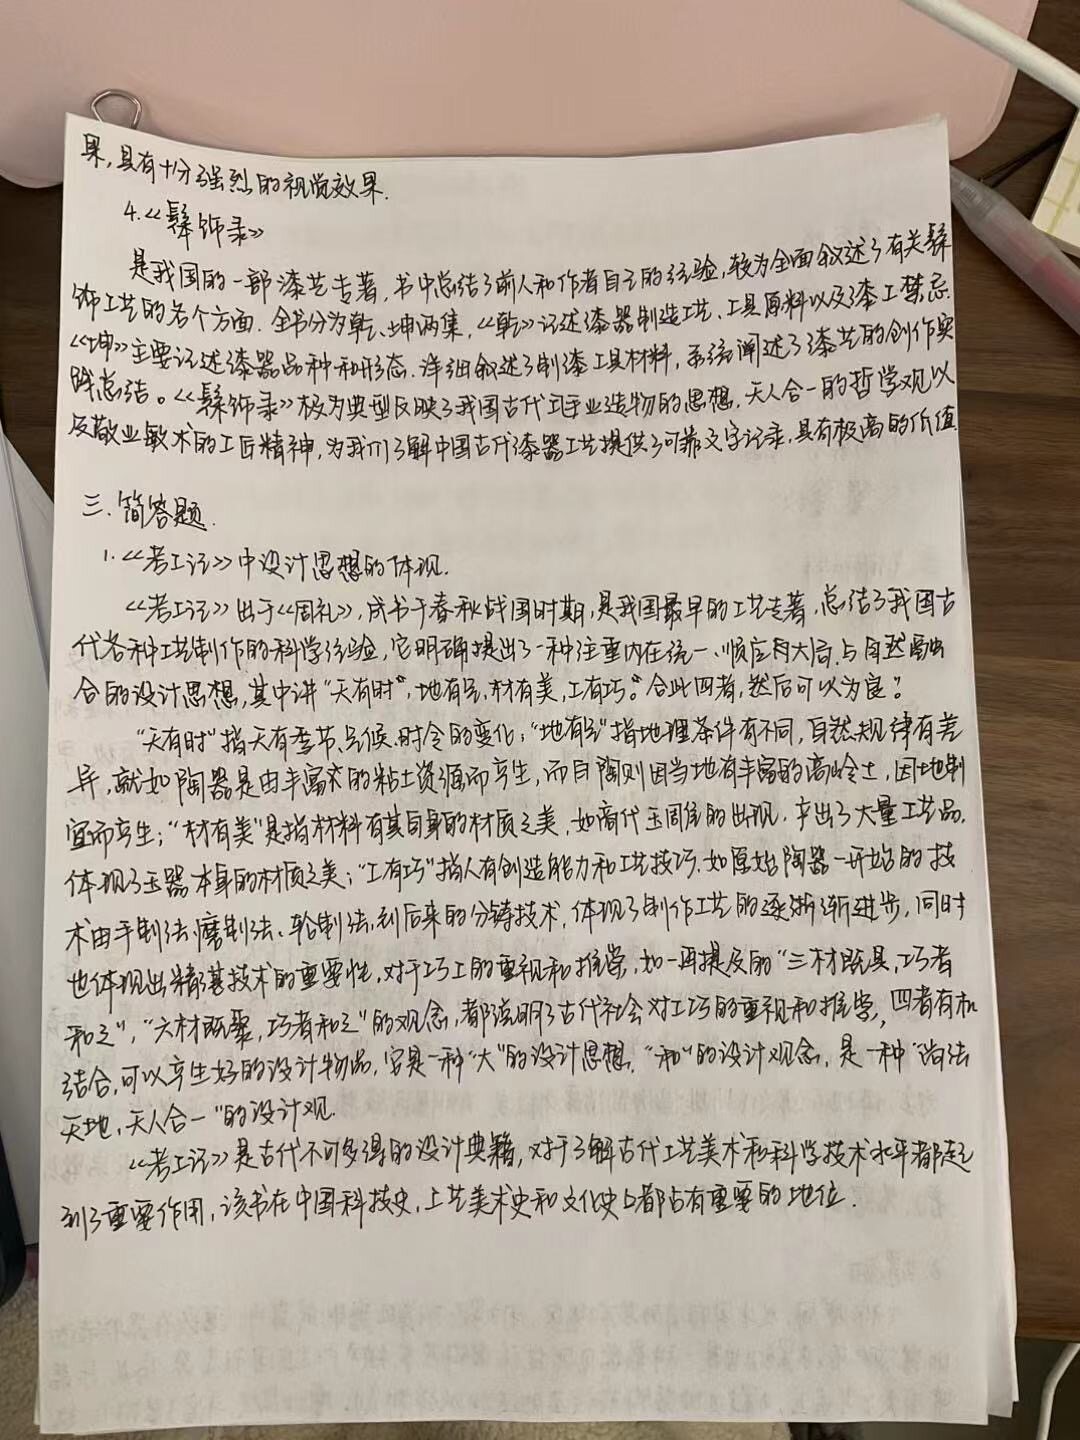 果，具有十分强烈的视觉效果.
4.《髹饰录》
是我国的一部漆艺专著，书中总结了前人和作者自己的经验，较为全面叙述了有关髹
饰工艺的各个方面.全书分为乾、坤两集，《乾》记述漆器制造工艺、工具原料以及漆工禁忌.
《坤》主要记述漆器品种和形态.详细叙述了制漆工具材料，系统阐述了漆艺的创作实
践总结。《髹饰录》极为典型反映了我国古代手工业造物的思想，天人合一的哲学观以
及敬业敏术的工匠精神，为我们了解中国古代漆器工艺提供了可靠文字记录，具有极高的价值.
三.简答题.
1.《考工记》中设计思想的体现.
《考工记》出于《周礼》，成书于春秋战国时期，是我国最早的工艺专著，总结了我国古
代各种工艺制作的科学经验，它明确提出了一种注重内在统一、顺应大局、与自然融
合的设计思想，其中讲“天有时”，地有气，材有美，工有巧。合此四者，然后可以为良”。
“天有时”指天有季节、气候、时令的变化；“地有气”指地理条件有不同，自然规律有差
异，就如陶器是由丰富的粘土资源而产生，而白陶则因当地有丰富的高岭土，因地制
宜而产生；“材有美”是指材料有其自身的材质之美，如商代玉的出现，产出了大量工艺品，
体现了玉器本身的材质之美；“工有巧”指人有创造能力和工艺技巧.如原始陶器一开始的技
术由手制法、磨制法、轮制法，到后来的分铸技术，体现了制作工艺的逐渐进步，同时
也体现出精湛技术的重要性，对于巧工的重视和推崇，如一再提及的“三材既具，巧者
和之”，“六材既聚，巧者和之”的观念，都说明了古代社会对工巧的重视和推崇，四者有机
结合，可以产生好的设计物品，它是一种“大”的设计思想，“和”的设计观念，是一种“尚法
天地，天人合一”的设计观.
《考工记》是古代不可多得的设计典籍，对于了解古代工艺美术和科学技术水平都起
到了重要作用，该书在中国科技史，工艺美术史和文化史上都占有重要的地位.